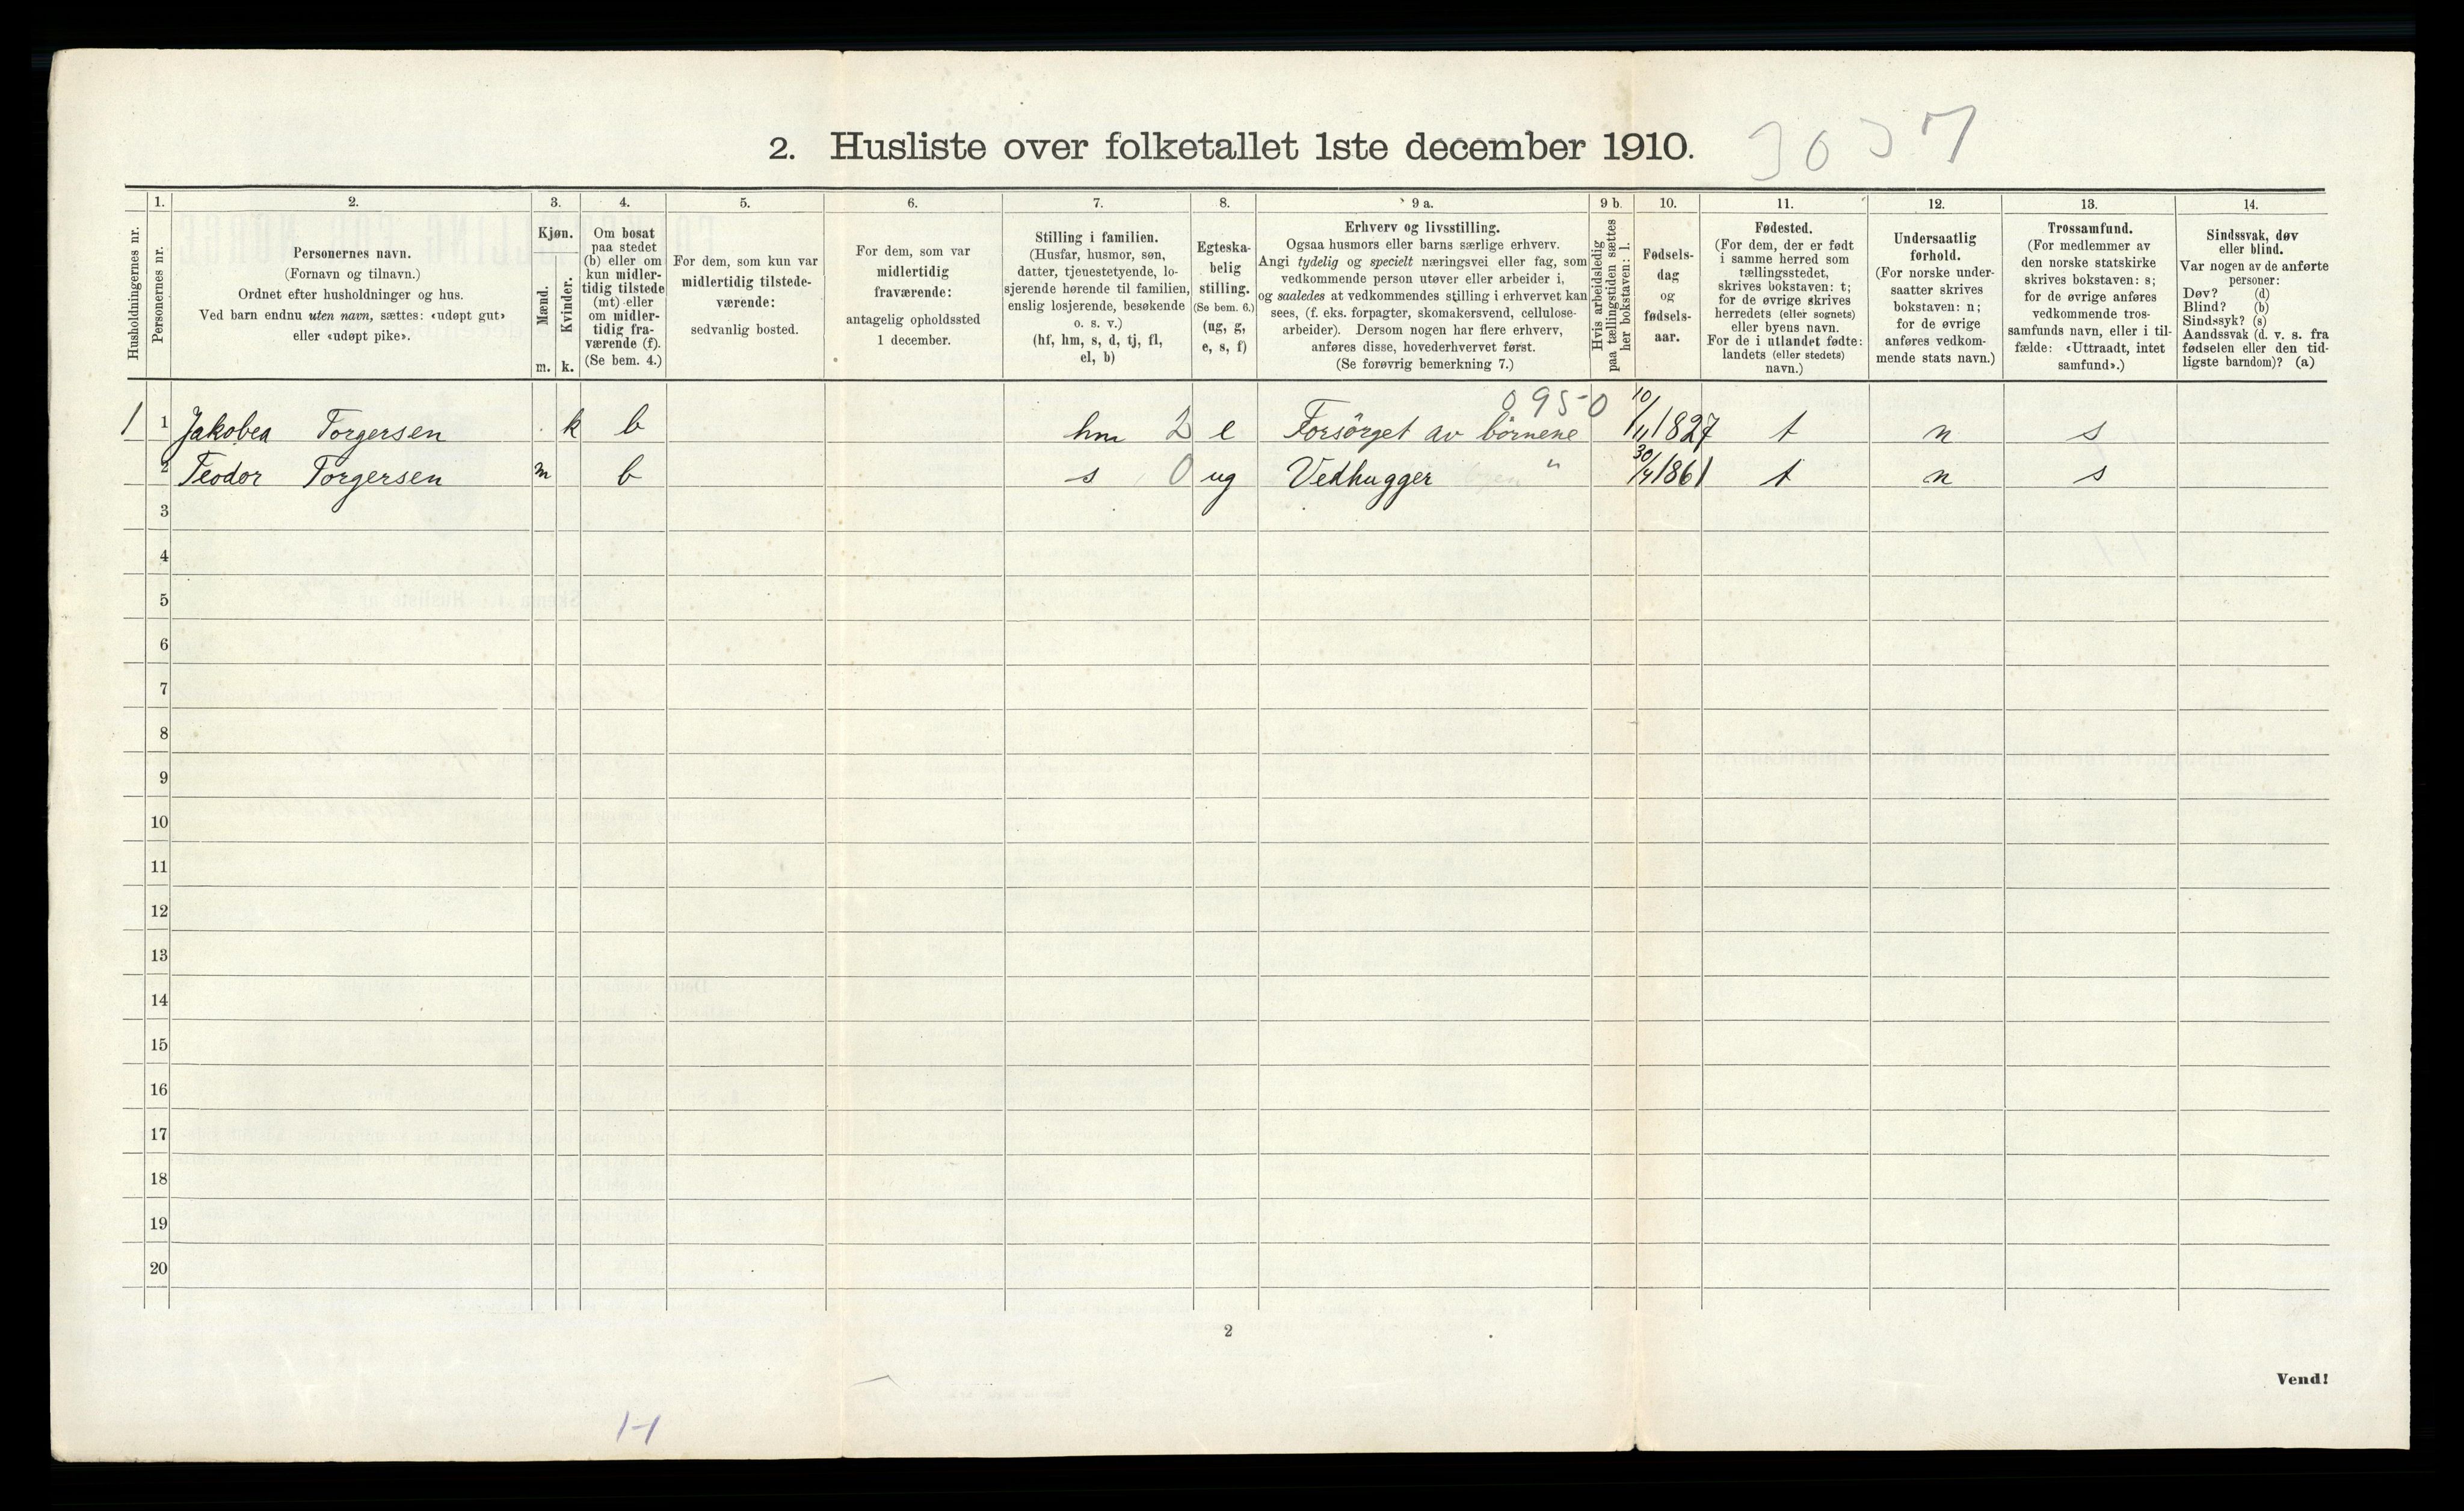 2. Husliste over folketallet 1ste december 1910.
3037
1. 2. 3. 4. 5. 6. 7. 8. 9 a. 9 b. 10. 11. 12. 13. 14.
Husholdningernes nr.
Personernes nr.
Personernes navn.
(Fornavn og tilnavn.)
Ordnet efter husholdninger og hus.
Ved barn endnu uten navn, sættes: «udøpt gut»
eller «udøpt pike».
Kjøn.
Mænd.
Kvinder.
m. k.
Om bosat
paa stedet
(b) eller om
kun midler-
tidig tilstede
(mt) eller
om midler-
tidig fra-
værende (f).
(Se bem. 4.)
For dem, som kun var
midlertidig tilstede-
værende:
sedvanlig bosted.
For dem, som var
midlertidig
fraværende:
antagelig opholdssted
1 december.
Stilling i familien.
(Husfar, husmor, søn,
datter, tjenestetyende, lo-
sjerende hørende til familien,
enslig losjerende, besøkende
o. s. v.)
(hf, hm, s, d, tj, fl,
el, b)
Egteska-
belig
stilling.
(Se bem. 6.)
(ug, g,
e, s, f)
Erhverv og livsstilling.
Ogsaa husmors eller barns særlige erhverv.
Angi tydelig og specielt næringsvei eller fag, som
vedkommende person utøver eller arbeider i,
og saaledes at vedkommendes stilling i erhvervet kan
sees, (f. eks. forpagter, skomakersvend, cellulose-
arbeider). Dersom nogen har flere erhverv,
anføres disse, hovederhvervet først.
(Se forøvrig bemerkning 7.)
Hvis arbeidsledig
paa tællingstiden sættes
her bokstaven: l.
Fødsels-
dag
og
fødsels-
aar.
Fødested.
(For dem, der er født
i samme herred som
tællingsstedet,
skrives bokstaven: t;
for de øvrige skrives
herredets (eller sognets)
eller byens navn.
For de i utlandet fødte:
landets (eller stedets)
navn.)
Undersaatlig
forhold.
(For norske under-
saatter skrives
bokstaven: n;
for de øvrige
anføres vedkom-
mende stats navn.)
Trossamfund.
(For medlemmer av
den norske statskirke
skrives bokstaven: s;
for de øvrige anføres
vedkommende tros-
samfunds navn, eller i til-
fælde: «Uttraadt, intet
samfund».)
Sindssvak, døv
eller blind.
Var nogen av de anførte
personer:
Døv? (d)
Blind? (b)
Sindssyk? (s)
Aandssvak (d. v. s. fra
fødselen eller den tid-
ligste barndom)? (a)
0950
1 1 Jakobea Torgersen k b hm 2 e Forsörget av börnene 10/11 1827 t n s
2 Teodor Torgersen m b s 0 ug Vedhugger " 30/4 1861 t n s
3
4
5
6
7
8
9
10
11
12
13
14
15
16
17
18
19
20
2
Vend!
1-1